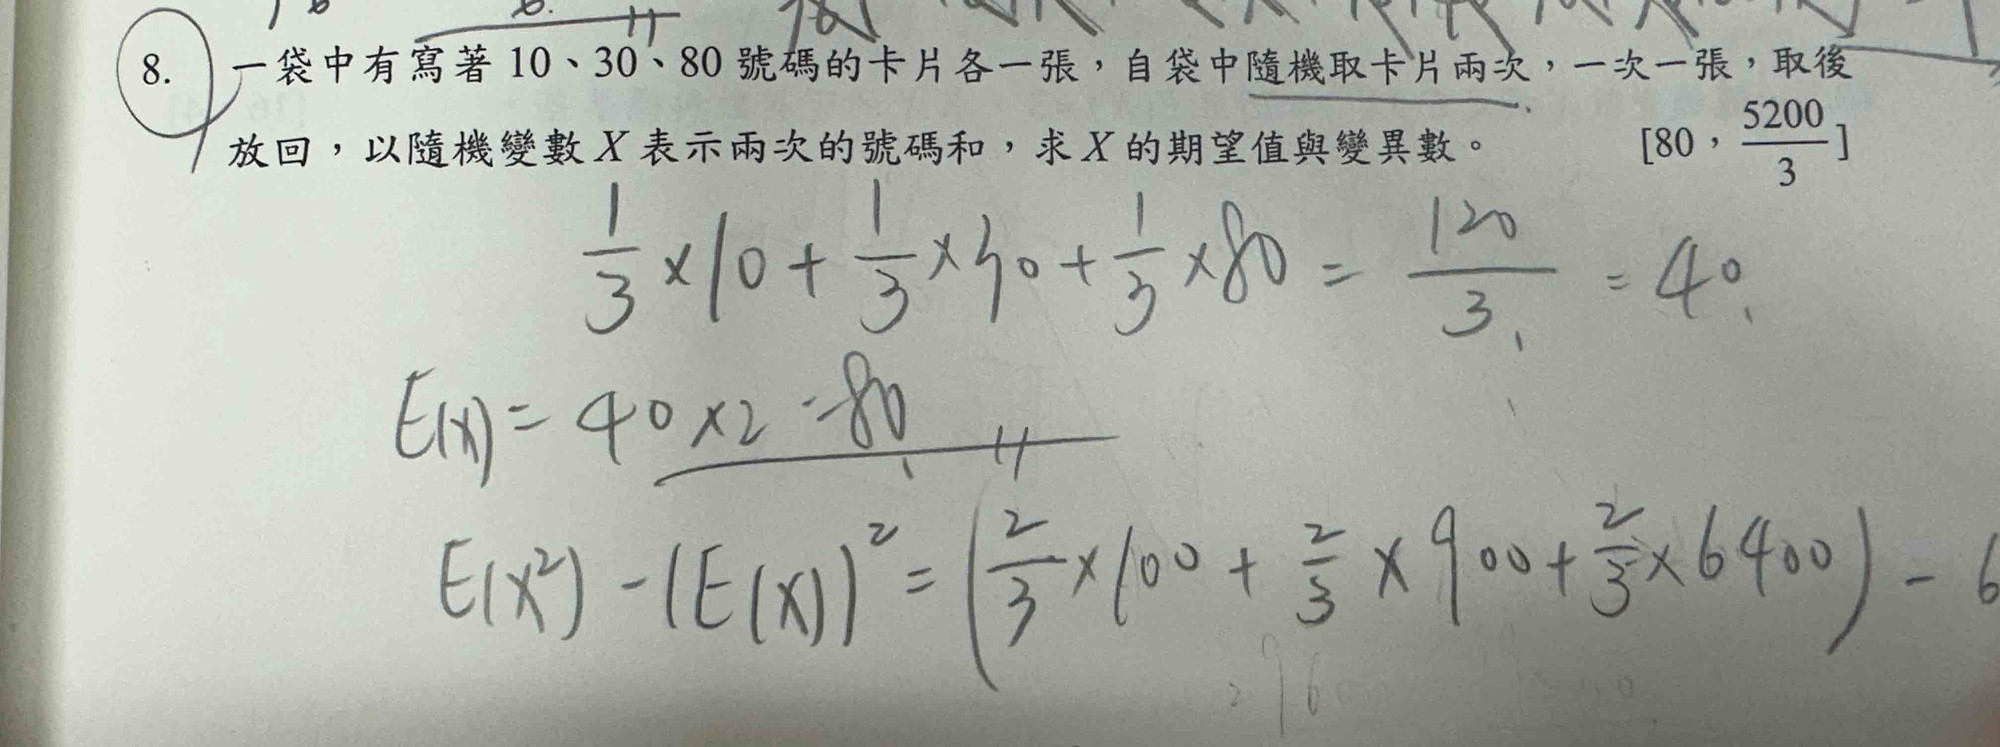 8. 一袋中有寫著 10、30、80 號碼的卡片各一張，自袋中隨機取卡片兩次，一次一張，取後
放回，以隨機變數 X 表示兩次的號碼和，求 X 的期望值與變異數。 [80，5200/3]
1/3 × 10 + 1/3 × 30 + 1/3 × 80 = 120/3 = 40
E(X) = 40 × 2 = 80
E(X²) - (E(X))² = (2/3 × 100 + 2/3 × 900 + 2/3 × 6400) - 6